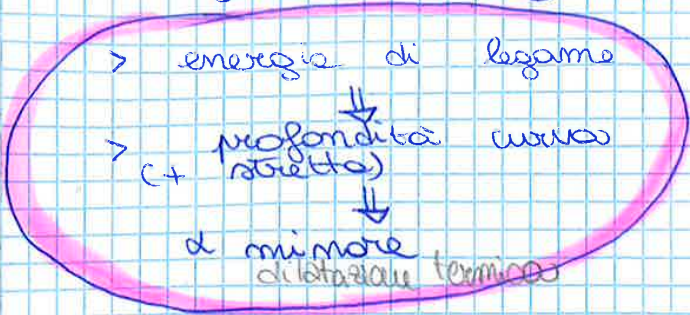 > energia di legame
⇓
> profondità curva
(+ stretta)
⇓
α minore
dilatazione termica